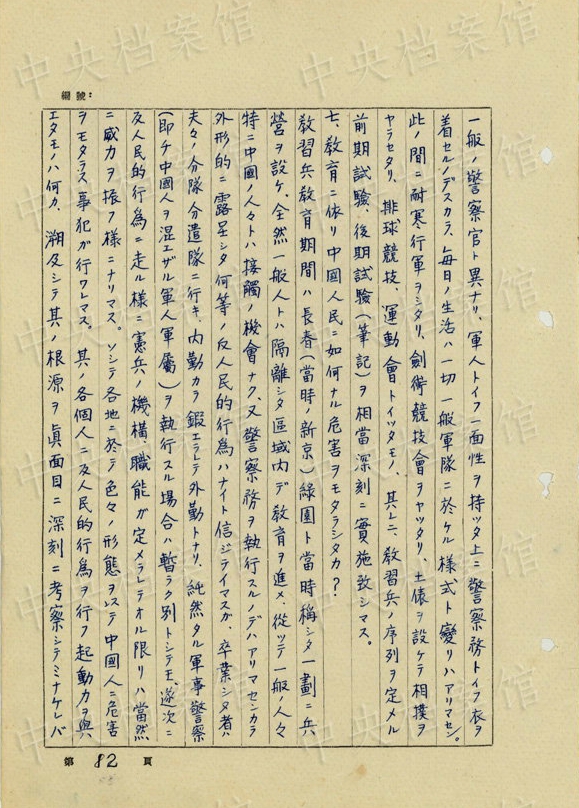 中央档案馆
編號：
一般ノ警察官ト異ナリ、軍人トイフ一面性ヲ持ツタ上ニ警察務トイフ衣ヲ
着セルノデスカラ、毎日ノ生活ハ一切一般軍隊ニ於ケル様式ト變リハアリマセン。
此ノ間ニ耐寒行軍ヲシタリ、劍術競技會ヲヤツタリ、土俵ヲ設ケテ相撲ヲ
ヤラセタリ、排球競技、運動會トイツタモノ、其上ニ、教習兵ノ序列ヲ定メル
前期試験、後期試験（筆記）ヲ相當深刻ニ實施致シマス。
七、教育ニ依リ中國人民ニ如何ナル危害ヲモタラシタカ？
教習兵教育期間ハ長春（當時ノ新京）緑園ト當時稱シタ一劃ニ兵
營ヲ設ケ、全然一般人トハ隔離シタ區域内デ教育ヲ進メ、從ツテ一般ノ人々
特ニ中國ノ人々トハ接觸ノ機會ナク、又警察務ヲ執行スルノデハアリマセンカラ
外形的ニ露呈シタ何等ノ反人民的行為ハナイト信ジテイマスガ、卒業シタ者ハ
夫々ノ分隊分遣隊ニ行キ、内勤カラ鍛エラレテ外勤トナリ、純然タル軍事警察
（即チ中國人ヲ混エザル軍人軍屬）ヲ執行スル場合ハ暫ラク別トシテモ、逐次ニ
反人民的行為ニ走ル様ニ憲兵ノ機構、職能ガ定メラレテオル限リハ當然
ニ威力ヲ振フ様ニナリマス。ソシテ各地ニ於テ色々ノ形態ヲ以テ中國人ニ危害
ヲモタラス事犯ガ行ワレマス。其ノ各個人ニ反人民的行為ヲ行フ起動力ヲ與
エタモノハ何カ、溯及シテ其ノ根源ヲ眞面目ニ深刻ニ考察シテミナケレバ
第 82 頁